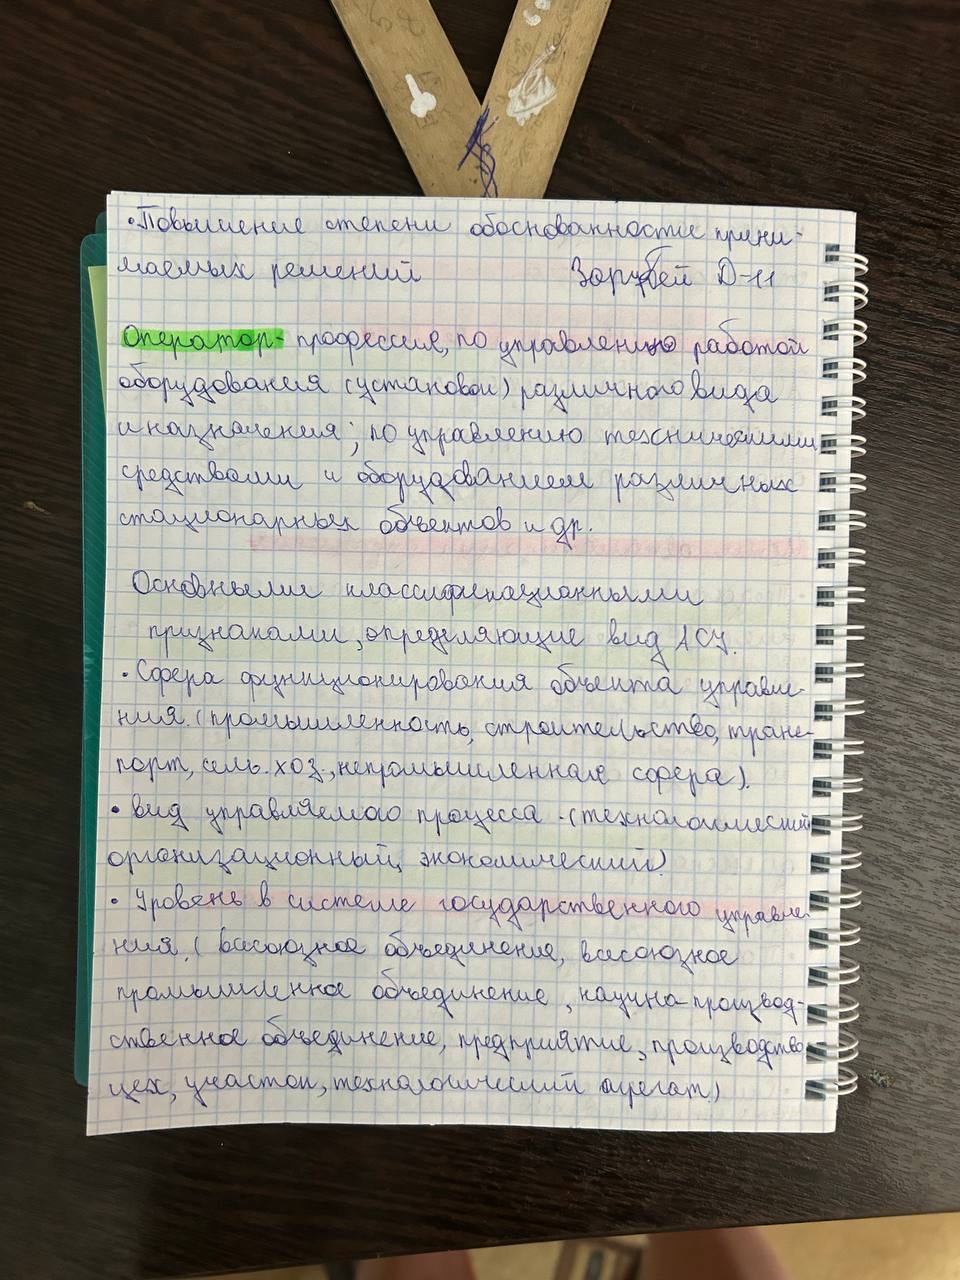 • Повышение степени обоснованности прини-
маемых решений Зорубей D-11
Оператор- профессия, по управлению работой
оборудования (установой) различного вида
и назначения; по управлению техническими
средствами и оборудованием различных
стационарных объектов и др.
Основными классификационными
признаками, определяющие вид АСУ.
• Сфера функционирования объекта управле-
ния. (промышленность, строительство, транс-
порт, сель. хоз., непромышленная сфера).
• вид управляемого процесса - (технологический
организационный, экономический)
• Уровень в системе государственного управле-
ния. ( васоюзное объединение, васоюзное
промышленное объединение, научно-производ-
ственное объединение, предприятие, производство
цех, участок, технологический агрегат)